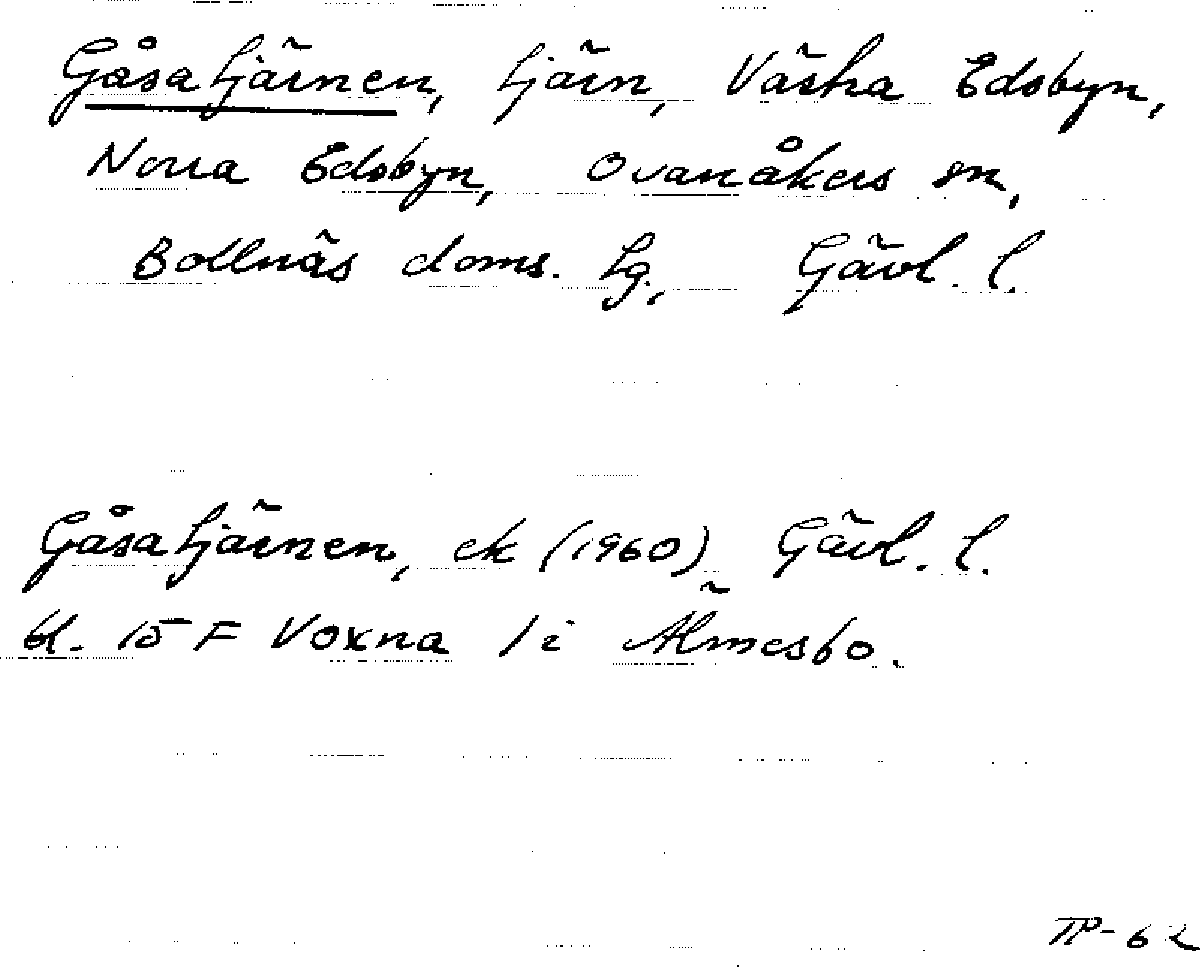 Gåsatjärnen, tjärn, Västra Edsbyn,
Norra Edsbyn, Ovanåkers sn,
Bollnäs doms. tg, Gävl. l.
Gåsatjärnen, ek (1960) Gävl. l.
bl. 15 F Voxna 1 i Älmesbo.
TP-62